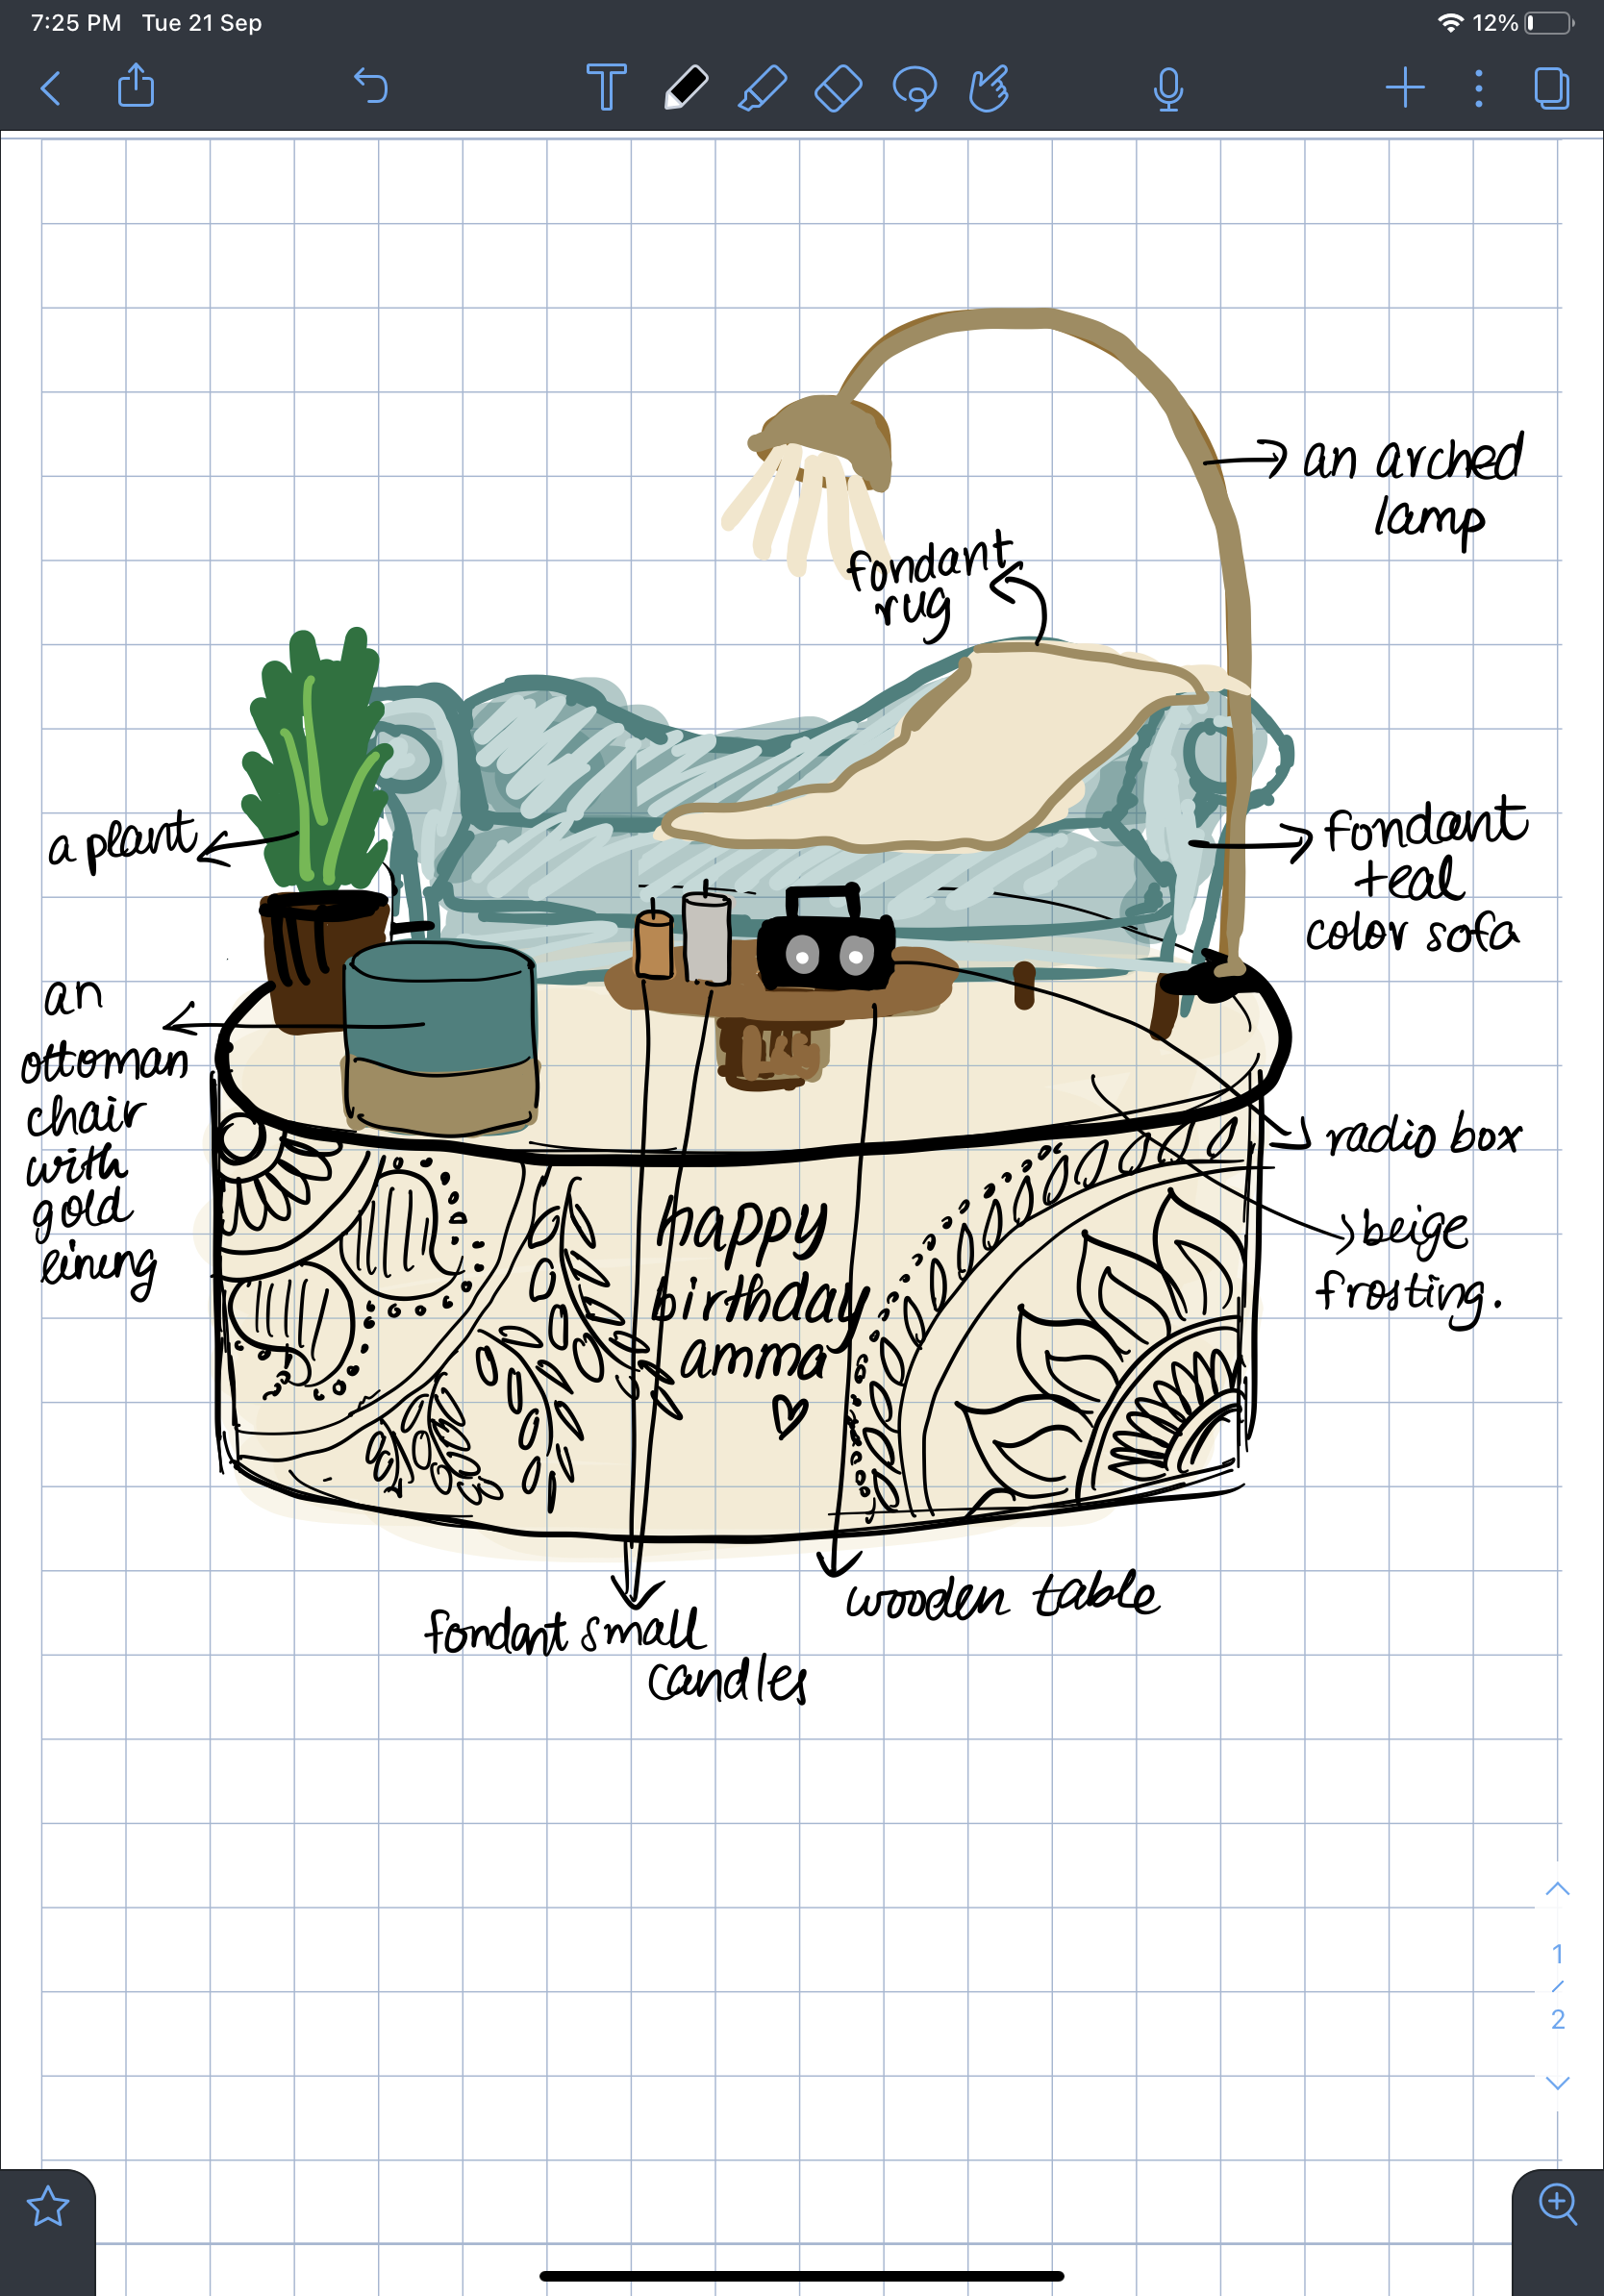 7:25 PM Tue 21 Sep
12%
T
an arched
lamp
fondant
rug
a plant
fondant
teal
color sofa
an
ottoman
chair
with
gold
lining
radio box
beige
frosting.
happy
birthday
amma
wooden table
fondant small
candles
1
/
2